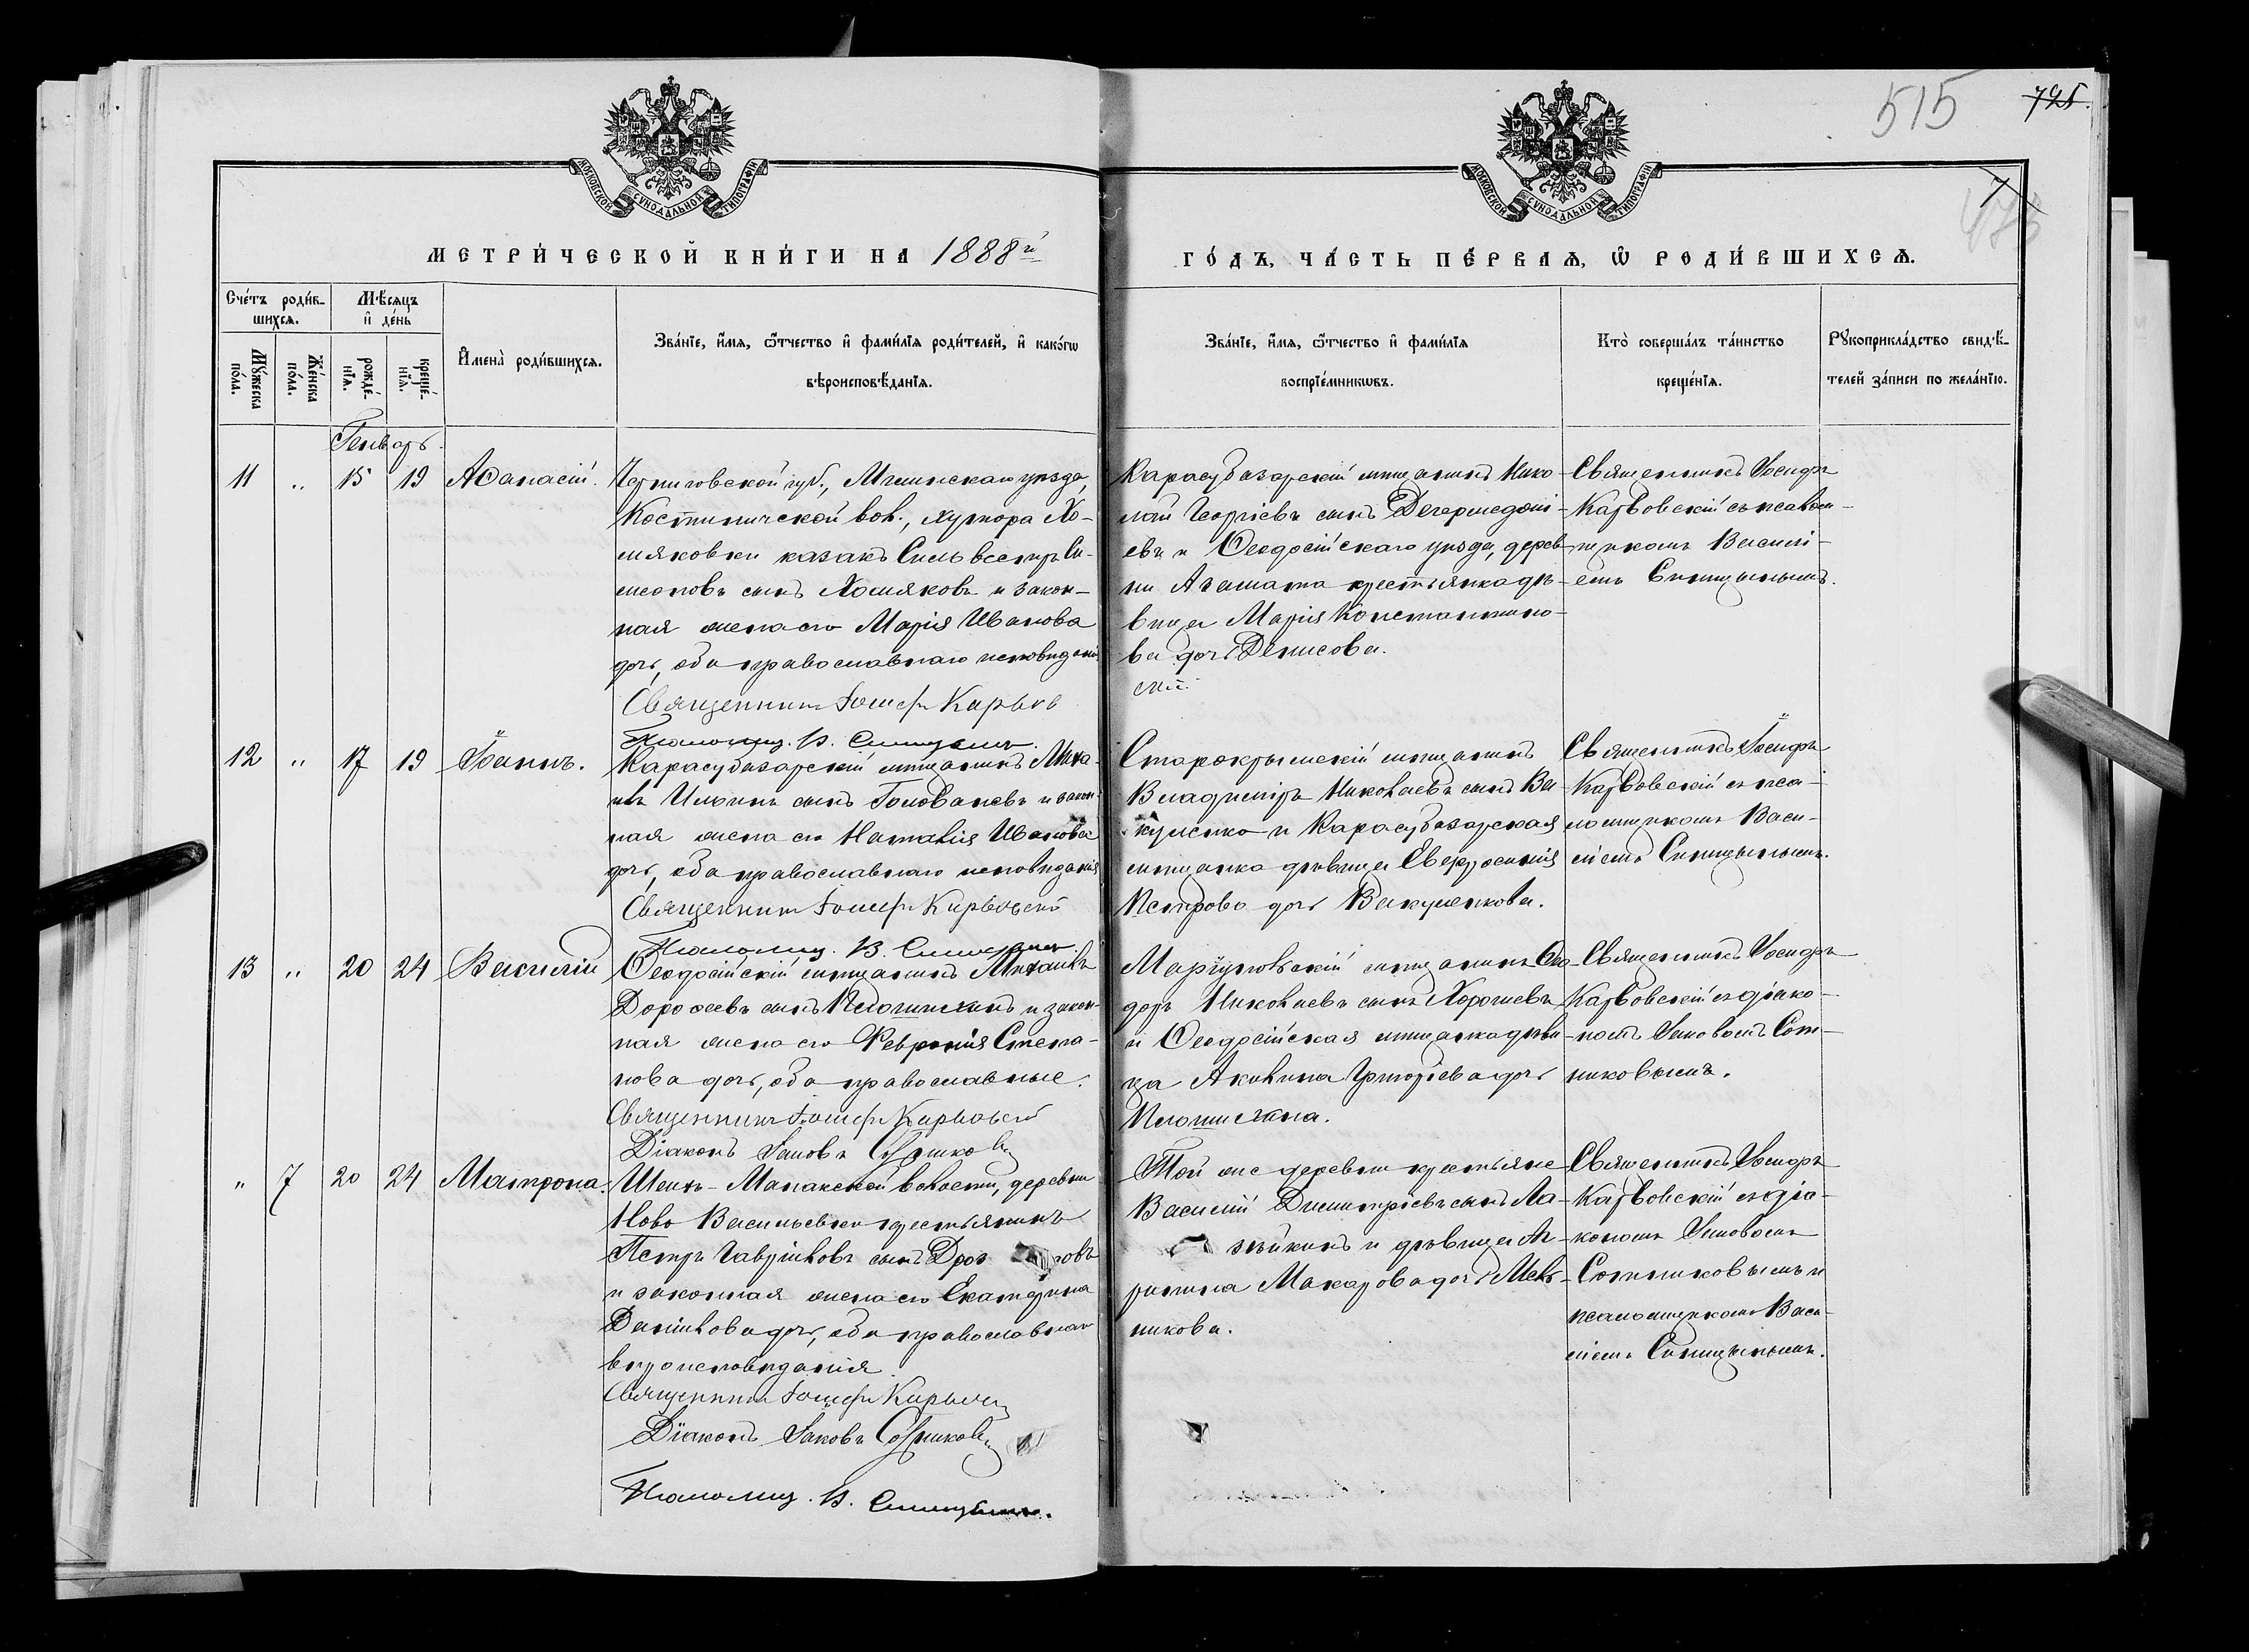 515
795.
7
МОСКОВСКОЙ СѴНОДАЛЬНОЙ ТИПОГРАФІИ
МОСКОВСКОЙ СѴНОДАЛЬНОЙ ТИПОГРАФІИ
МЕТРИ́ЧЕСКОЙ КНИ́ГИ НА 1888й
ГО́ДЪ, ЧА́СТЬ ПЕ́РВАѦ, Ѡ҆ РОДИ́ВШИХСѦ.
Сче́тъ роди́в-
шихсѧ.
Мꙋ́жеска по́ла.
Же́нска по́ла.
Мѣ́сѧцъ
и҆ де́нь
рожде́-
нїѧ.
креще́-
нїѧ.
И҆мена̀ роди́вшихсѧ.
Зва́нїе, и҆́мѧ, ѻ҆́тчество и҆ фами́лїѧ роди́телей, и҆ како́гѡ
вѣроисповѣ́данїѧ.
Зва́нїе, и҆́мѧ, ѻ҆́тчество и҆ фами́лїѧ
воспрїе́мникѡвъ.
Кто̀ соверша́лъ та́инство
креще́нїѧ.
Рꙋкоприкла́дство свидѣ́-
телей за́писи по жела́нїю.
Генварь.
11 " 15 19 Аѳанасій.
Черниговской губ., Мглинскаго уѣзда,
Костиничской вол., хутора Хо-
мяковки казакъ Сильвестръ Си-
меоновъ сынъ Хомяковъ и закон-
ная жена его Марія Иванова
дочь, оба православнаго исповѣданія
Священникъ Іосифъ Карьков
скій
Псаломщ. В. Синицынъ.
Карасубазарскій мѣщанинъ Нико-
лай Георгіевъ сынъ Дегермеджі-
евъ и Ѳеодосійскаго уѣзда, дерев-
ни Агамата крестьянка дѣ-
вица Марія Константино-
ва дочь Денисова.
Священникъ Іосифъ
Карьковскій съ псалом-
щикомъ Василі-
емъ Синицынымъ.
12 " 17 19 Іоаннъ.
Карасубазарскій мѣщанинъ Миха-
илъ Ильинъ сынъ Голованевъ и закон-
ная жена его Наталія Иванова
дочь, оба православнаго исповѣданія
Священникъ Іосифъ Карьковскій
Псаломщ. В. Синицынъ.
Старокрымскій мѣщанинъ
Владиміръ Николаевъ сынъ Ва-
куленко и Карасубазарская
мѣщанка дѣвица Евфросинія
Петрова дочь Вакуленкова.
Священникъ Іосифъ
Карьковскій съ пса-
ломщикомъ Васи-
ліемъ Синицынымъ.
13 " 20 24 Василій
Ѳеодосійскій мѣщанинъ Михаилъ
Дороѳеевъ сынъ и закон-
ная жена его Февронія Степа-
нова дочь, оба православные.
Священникъ Іосифъ Карьковскій
Діаконъ Іаковъ Сотниковъ
Маріупольскій мѣщанинъ Ѳео-
доръ Николаевъ сынъ Хорошевъ
и Ѳеодосійская мѣщанка дѣви-
ца Акилина Григорьева дочь
Священникъ Іосифъ
Карьковскій съ діако-
номъ Іаковомъ Сот-
никовымъ.
" 7 20 24 Матрона.
Шейхъ-Манакской волости, деревни
Ново Васильевки крестьянинъ
Петръ Гавріиловъ сынъ
и законная жена его Екатерина
Даніилова дочь, оба православнаго
вѣроисповѣданія.
Священникъ Іосифъ Карьковскій
Діаконъ Іаковъ Сотниковъ
Псаломщ. В. Синицынъ.
Той же деревни крестьяне
Василій Димитріевъ сынъ Ла-
зейкинъ и дѣвица Ага-
рипина Макарова дочь Мель-
никова.
Священникъ Іосифъ
Карьковскій съ діа-
кономъ Іаковомъ
Сотниковымъ и
псаломщикомъ Васи-
ліемъ Синицынымъ.